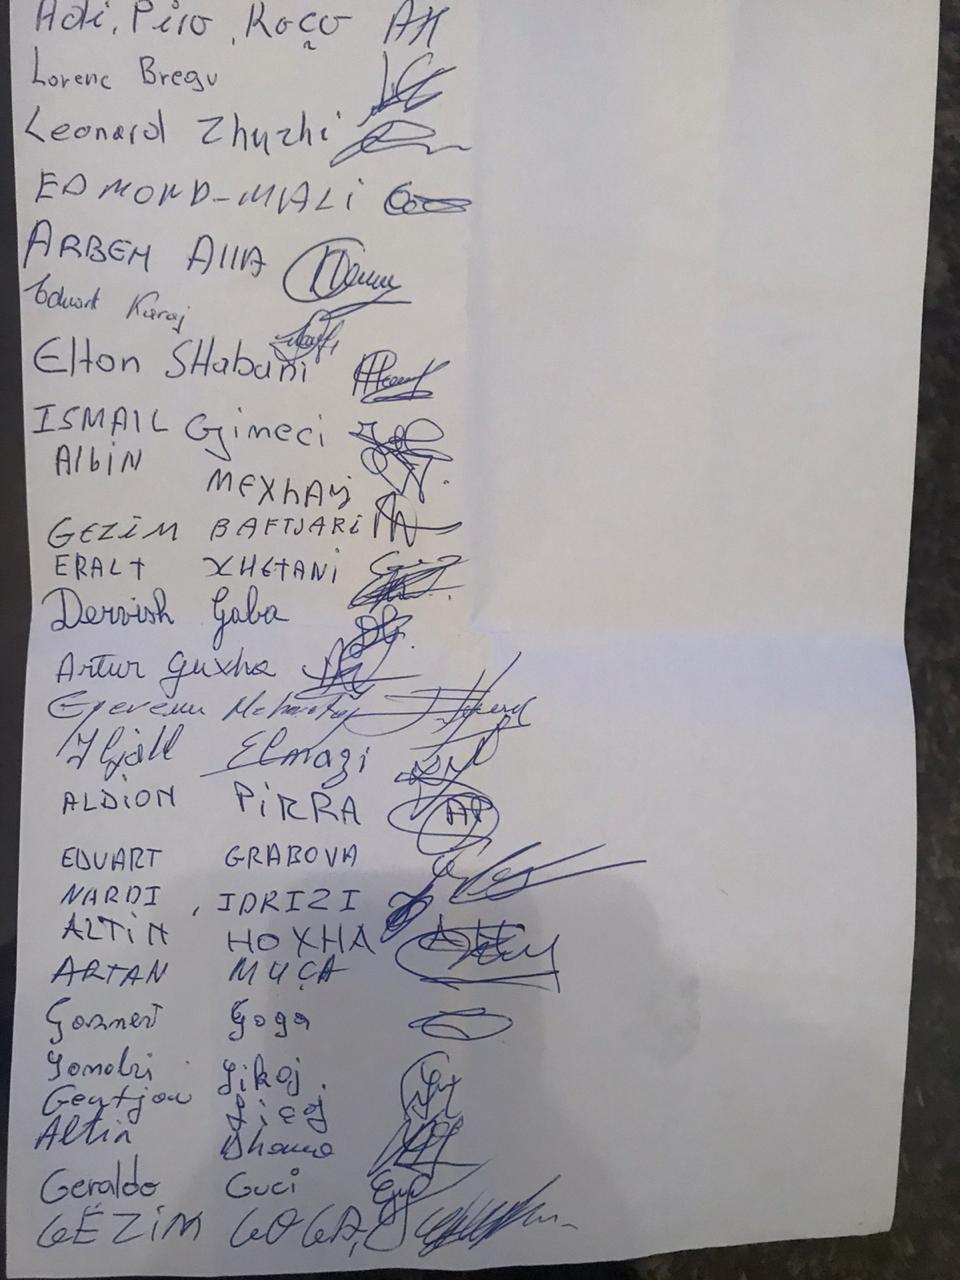 Adi, Piro, Koço AH
Lorenc Bregu
Leonard Zhuzhi
EDMOND-MIALI
ARBEN Alla
Eduart Karaj
Elton SHabani
ISMAIL Gjineci
AlbiN
MEXhAj
GEZiM BAFTJARi
ERALT XHETANi
Dervish Gaba
Artur Guxha
Elmazi
ALDION PiRRA AP
EDUART GRABOVA
NARDI, IDRIZI
ALTiN HOXHA
ARTAN MUÇA
Gazment Goga
Gikaj.
Gentjan
Altin Dhama
Geraldo Guci
GËZiM GOGA,